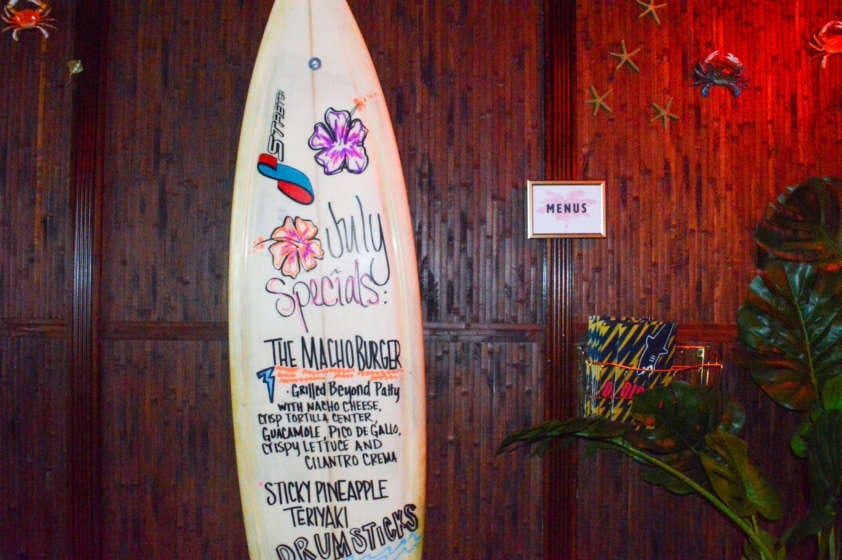 STRETCH
July
Specials:
MENUS
THE MACHO BURGER
· Grilled Beyond Patty
WITH NACHO CHEESE,
CRISP TORTILLA CENTER,
GUACAMOLE, PICO DE GALLO,
CRISPY LETTUCE AND
CILANTRO CREMA
STICKY PINEAPPLE
TERIYAKI
DRUMSTICKS